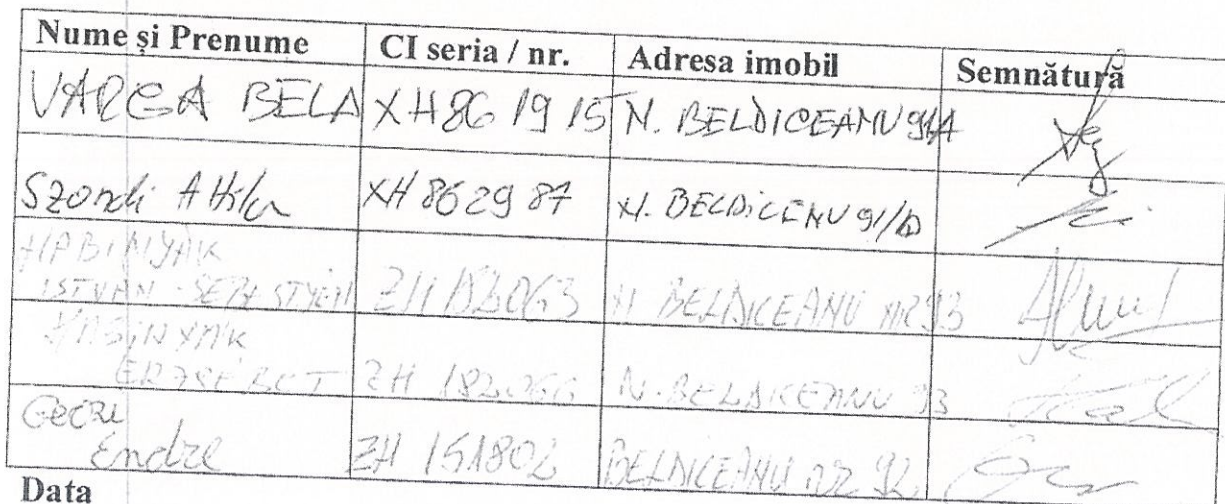 Nume și Prenume CI seria / nr. Adresa imobil Semnătură
VARGA BELA XH 86 19 15 N. BELDICEANU 91/A
Szondi Attila XH 8629 87 N. BELDICENU 91/b
ISTVAN-SEBESTYEN N BELDICEANU NR 93
ERZSEBET ZH N. BELDICEANU 93
Geczi
Endre ZH 151802 BELDICEANU nr 92
Data